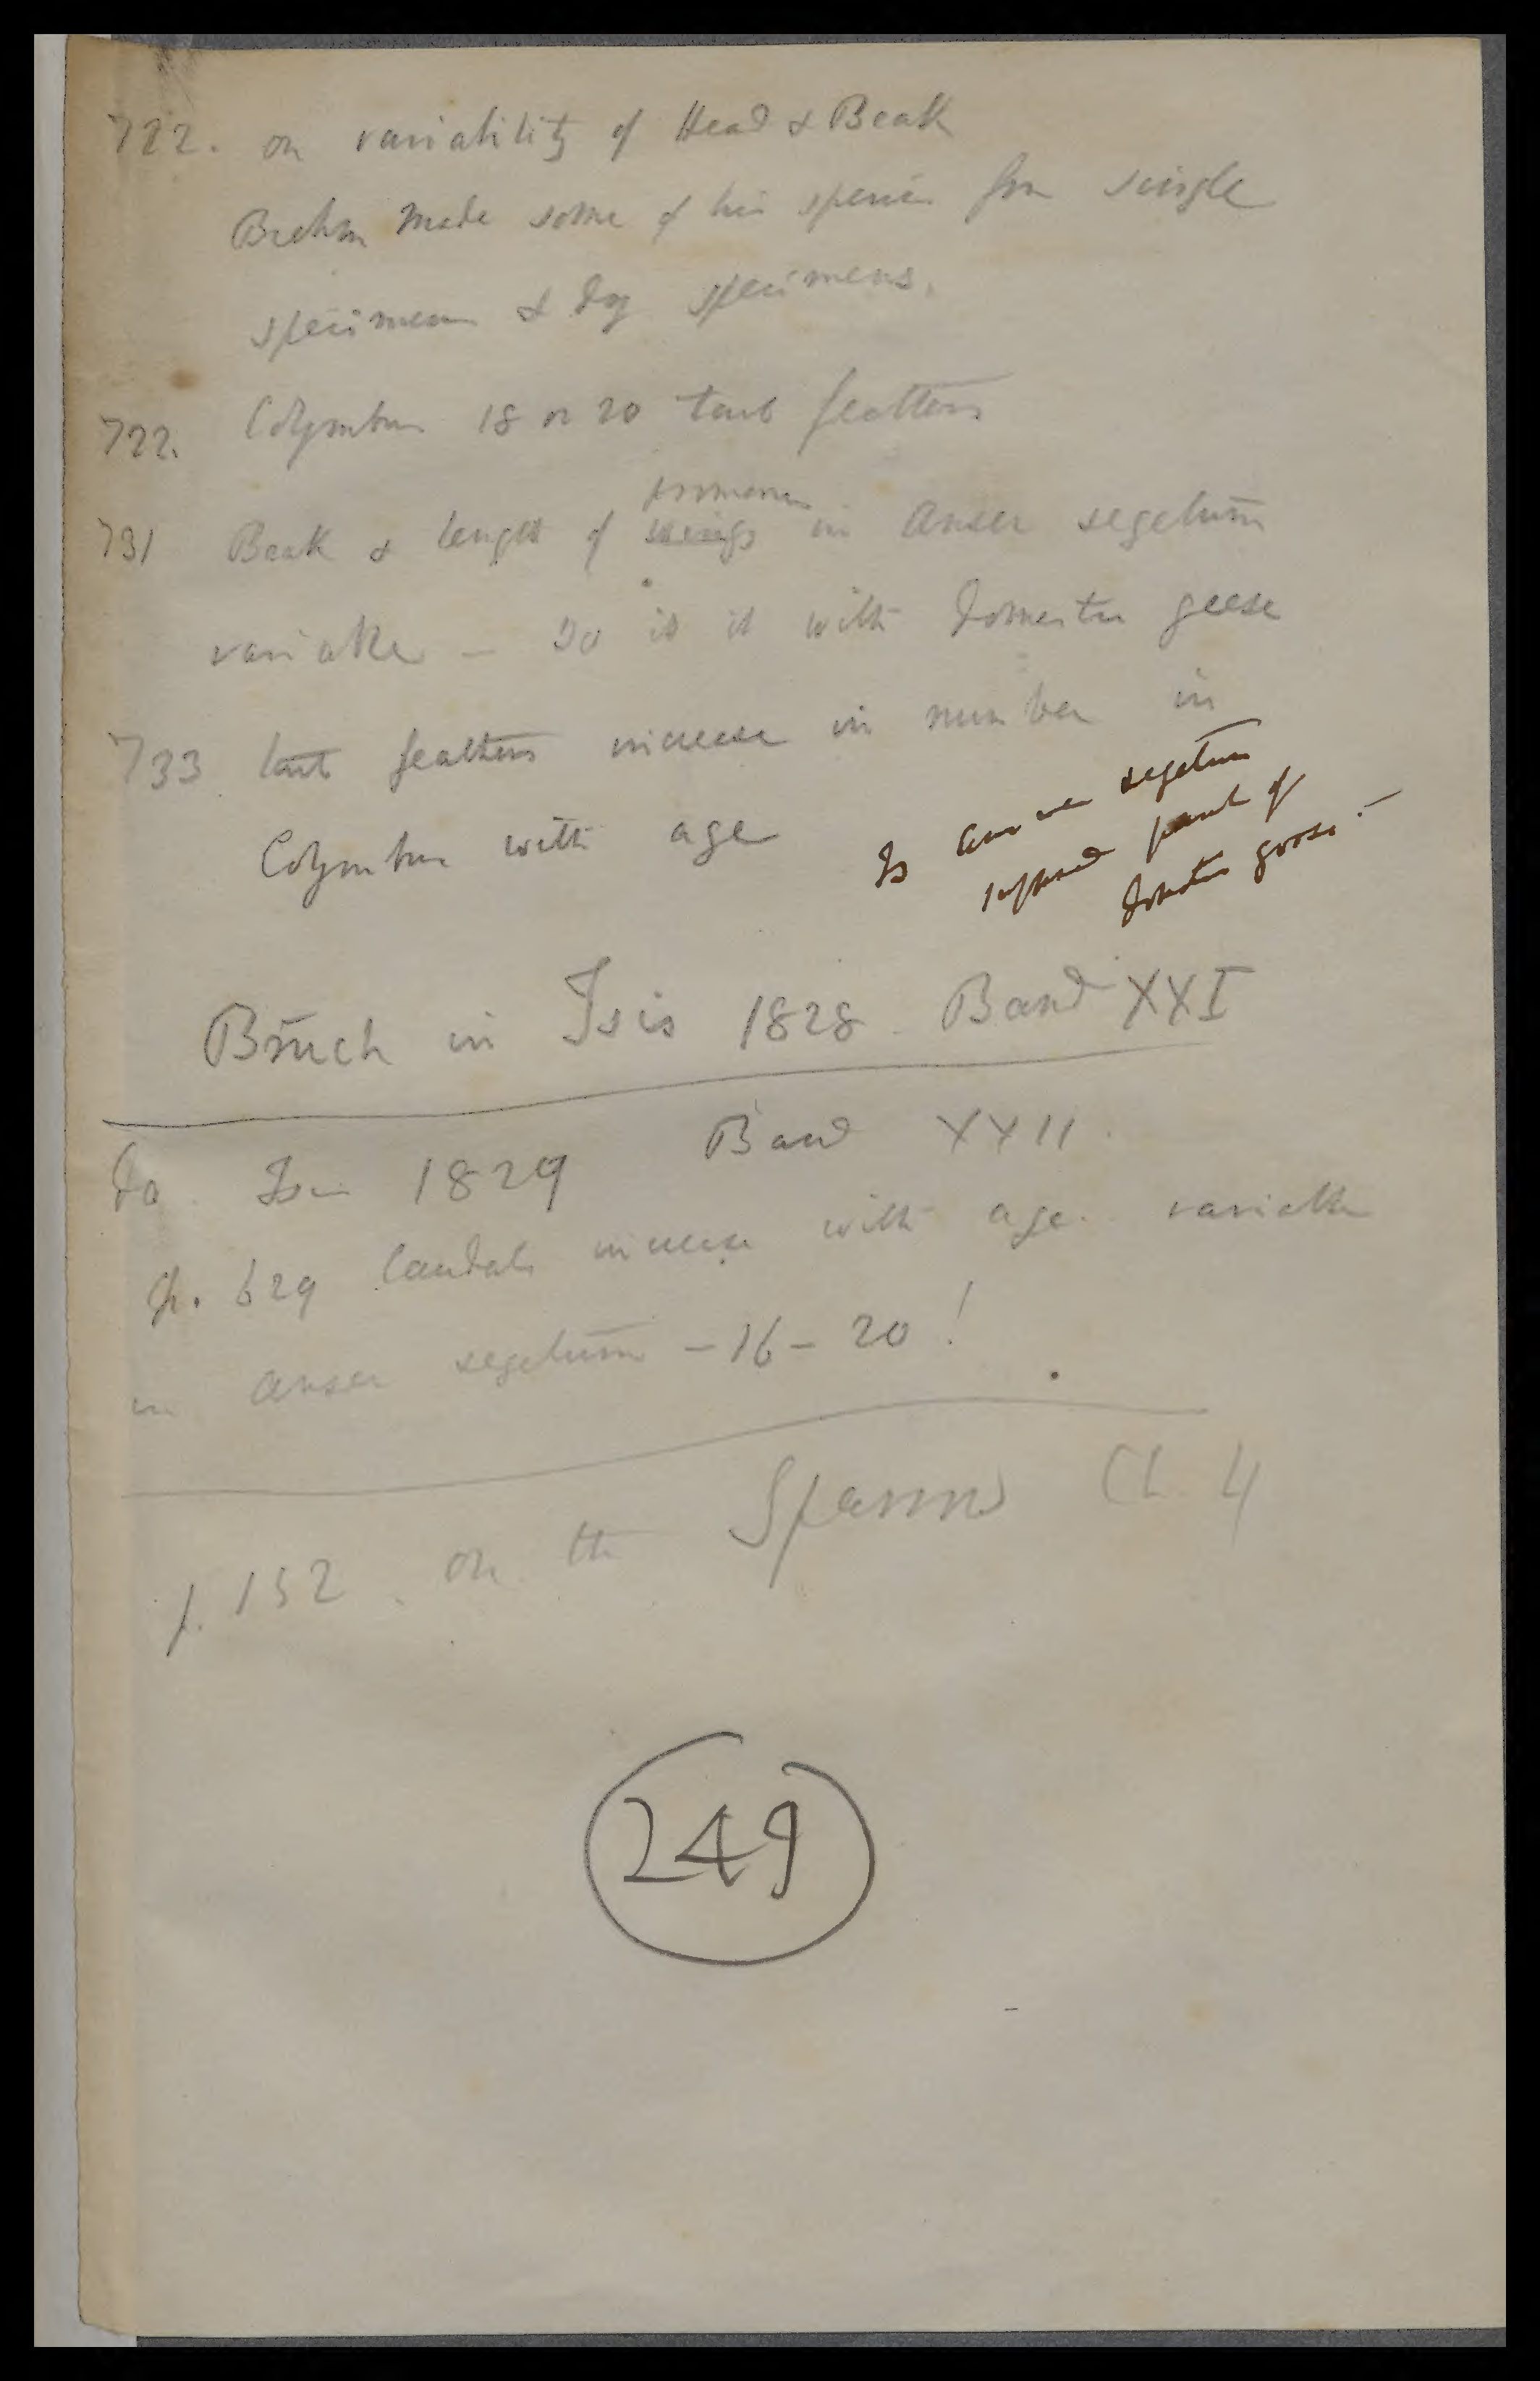 722. on variability of Head & Beak
Brehm made some of his species from single
specimen & dry specimens.
722. Colymbus 18 or 20 tail feathers
primaries
731 Beak & length of wings in Anser segetum
variable — So is it with domestic geese
733 tail feathers increase in number in
Colymbus with age
Is Anser segetum
supposed parent of
domestic goose. —
Bruch in Isis 1828. Band XXI
do. Isis 1829 Band XXII.
p. 629 Caudals increase with age. variable
in Anser segetum – 16 – 20!
p. 152. on the Sparrows Ch. 4
249